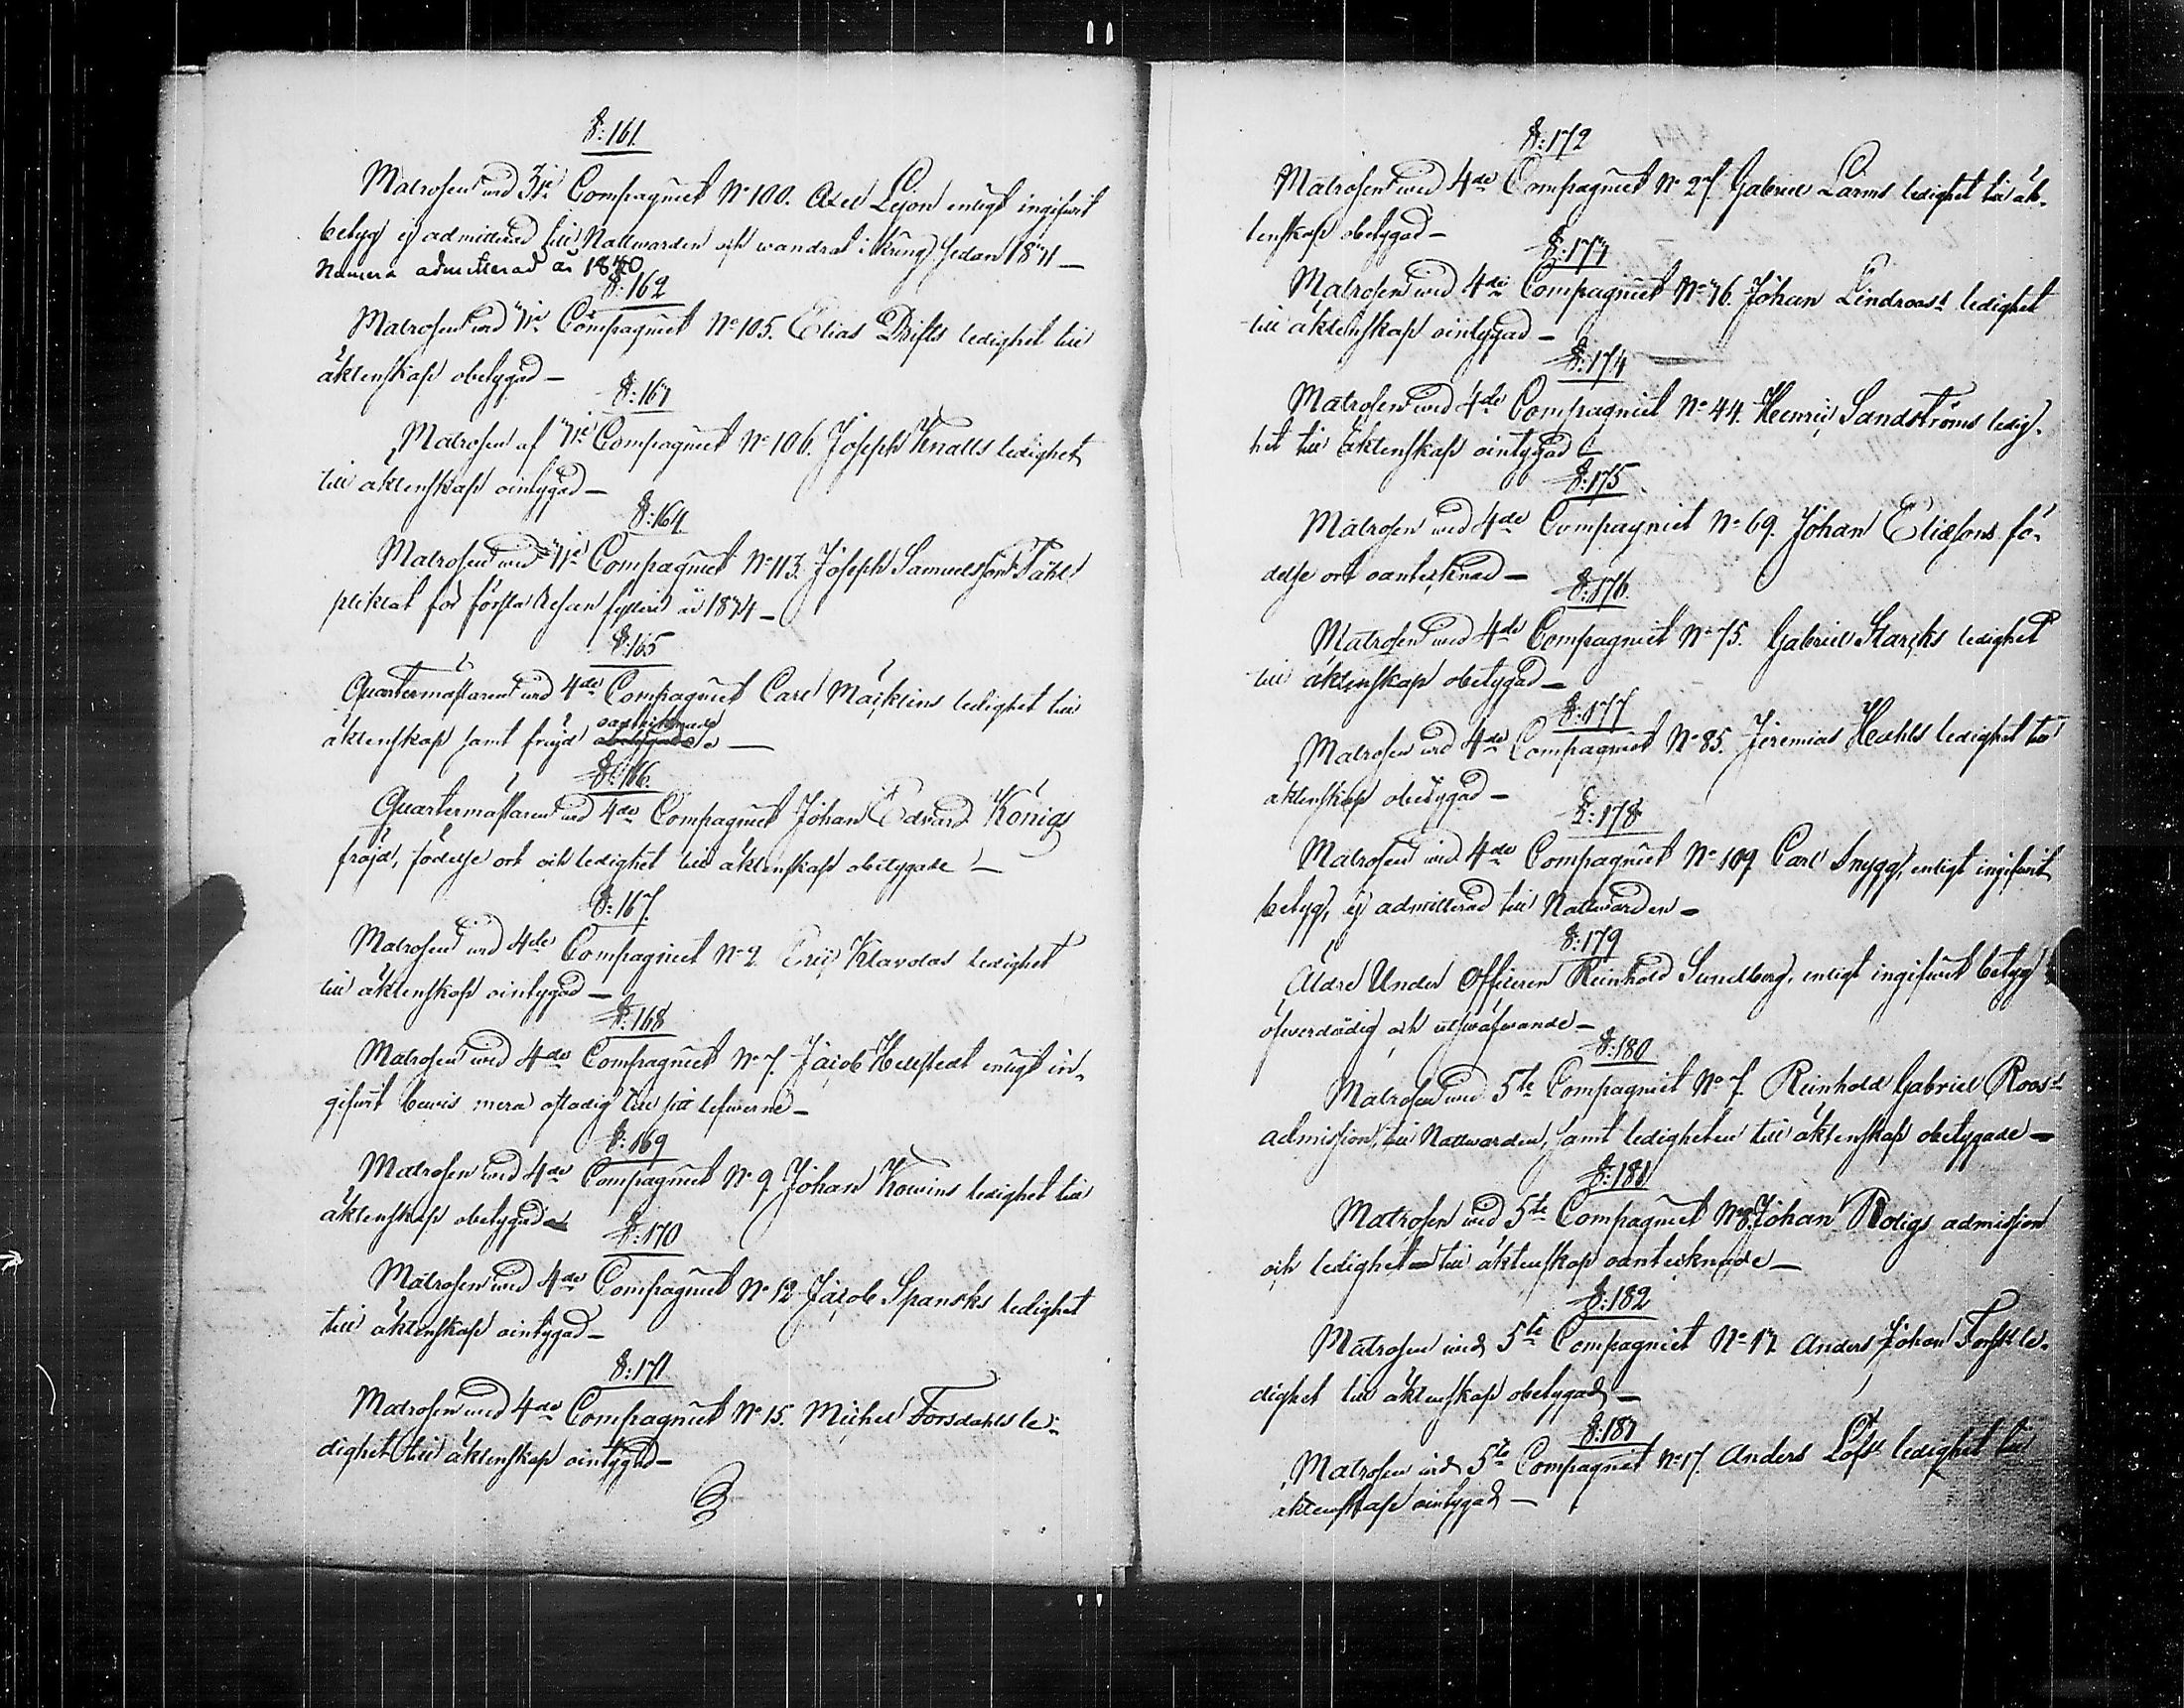 §: 161.
Matrosen wid 3je Compagniet No 100. Axel Lejon enligt ingifwit
betyg ej admitterad till Nattwarden och wandrat ikring sedan 1831 —
Numera admitterad år 1840.
§: 162
Matrosen wid 3je Compagniet No 105. Elias Drifts ledighet till
äktenskap obetygad —
§: 163
Matrosen af 3je Compagniet No 106. Joseph Knalls ledighet
till äktenskap ointygad —
§: 164
Matrosen wid 3je Compagniet No 113. Joseph Samuelsson Ståhl
pliktat för första resan fylleri år 1834 —
§: 165
Quartermästaren wid 4de Compagniet Carl Mäcklins ledighet till
äktenskap samt frejd oanteknade —
§: 166.
Quartermästaren wid 4de Compagniet Johan Edvard Königs
fräjd, födelse ort och ledighet till äktenskap obetygade —
§: 167.
Matrosen wid 4de Compagniet No 2. Eric Klavolas ledighet
till äktenskap ointygad —
§: 168
Matrosen wid 4de Compagniet No 7. Jacob Hellstedt enligt in-
gifwit bewis mera ostadig till sit lefwerne —
§: 169
Matrosen wid 4de Compagniet No 9. Johan Kowins ledighet till
äktenskap obetygad
§: 170
Matrosen wid 4de Compagniet No 12 Jacob Spansks ledighet
till äktenskap ointygad —
§: 171
Matrosen wid 4de Compagniet No 15. Michel Forsdahls le-
dighet till äktenskap ointygad —
§: 172
Matrosen wid 4de Compagniet No 27. Gabriel Larms ledighet till äk-
tenskap obetygad —
§: 173
Matrosen wid 4de Compagniet No 36. Johan Lindroos's ledighet
till äktenskap ointygad —
§: 174
Matrosen wid 4de Compagniet No 44. Henric Sandströms ledig-
het till äktenskap ointygad —
§: 175
Matrosen wid 4de Compagniet No 69. Johan Eliæsons fö-
delse ort oantecknad —
§: 176.
Matrosen wid 4de Compagniet No 75. Gabriel Starcks ledighet
till äktenskap obetygad —
§: 177
Matrosen wid 4de Compagniet No 85. Jeremias ledighet till
äktenskap obetygad —
§: 178
Matrosen wid 4de Compagniet No 109 Carl Snygg, enligt ingifwit
betyg, ej admitterad till Nattwarden —
§: 179
Äldre Under Officeren Reinhold Sundberg, enligt ingifwit betyg
öfwerdådig och utswäfwande —
§: 180
Matrosen wid 5te Compagniet No 7. Reinhold Gabriel Roos's
admission till Nattwarden, samt ledigheten till äktenskap obetygade —
§: 181
Matrosen wid 5te Compagniet No 8. Johan Roligs admission
och ledighet till äktenskap oantecknade —
§: 182
Matrosen wid 5te Compagniet No 13 Anders Johan le-
dighet till äktenskap obetygad —
§: 183
Matrosen wid 5te Compagniet No 17. Anders Löfs ledighet till
äktenskap ointygad —